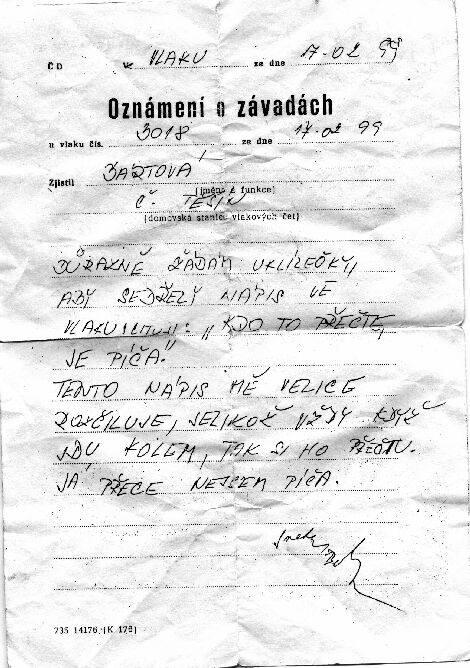 ČD v VLAKU ze dne 17.02 99
Oznámení o závadách
u vlaku čís. 3018 ze dne 17.02 99
Zjistil BARTOVÁ
(jméno a funkce)
Č. TĚŠÍN
(domovská stanice vlakových čet)
DŮRAZNĚ ŽÁDÁM UKLÍZEČKY,
ABY SEDŘELY NÁPIS VE
VLAKU : „KDO TO PŘEČTE,
JE PÍČA."
TENTO NÁPIS MĚ VELICE
ROZČILUJE, JELIKOŽ VŽDY KDYŽ
JDU KOLEM, TAK SI HO PŘEČTU.
JÁ PŘECE NEJSEM PÍČA.
735 14176 (K 178)